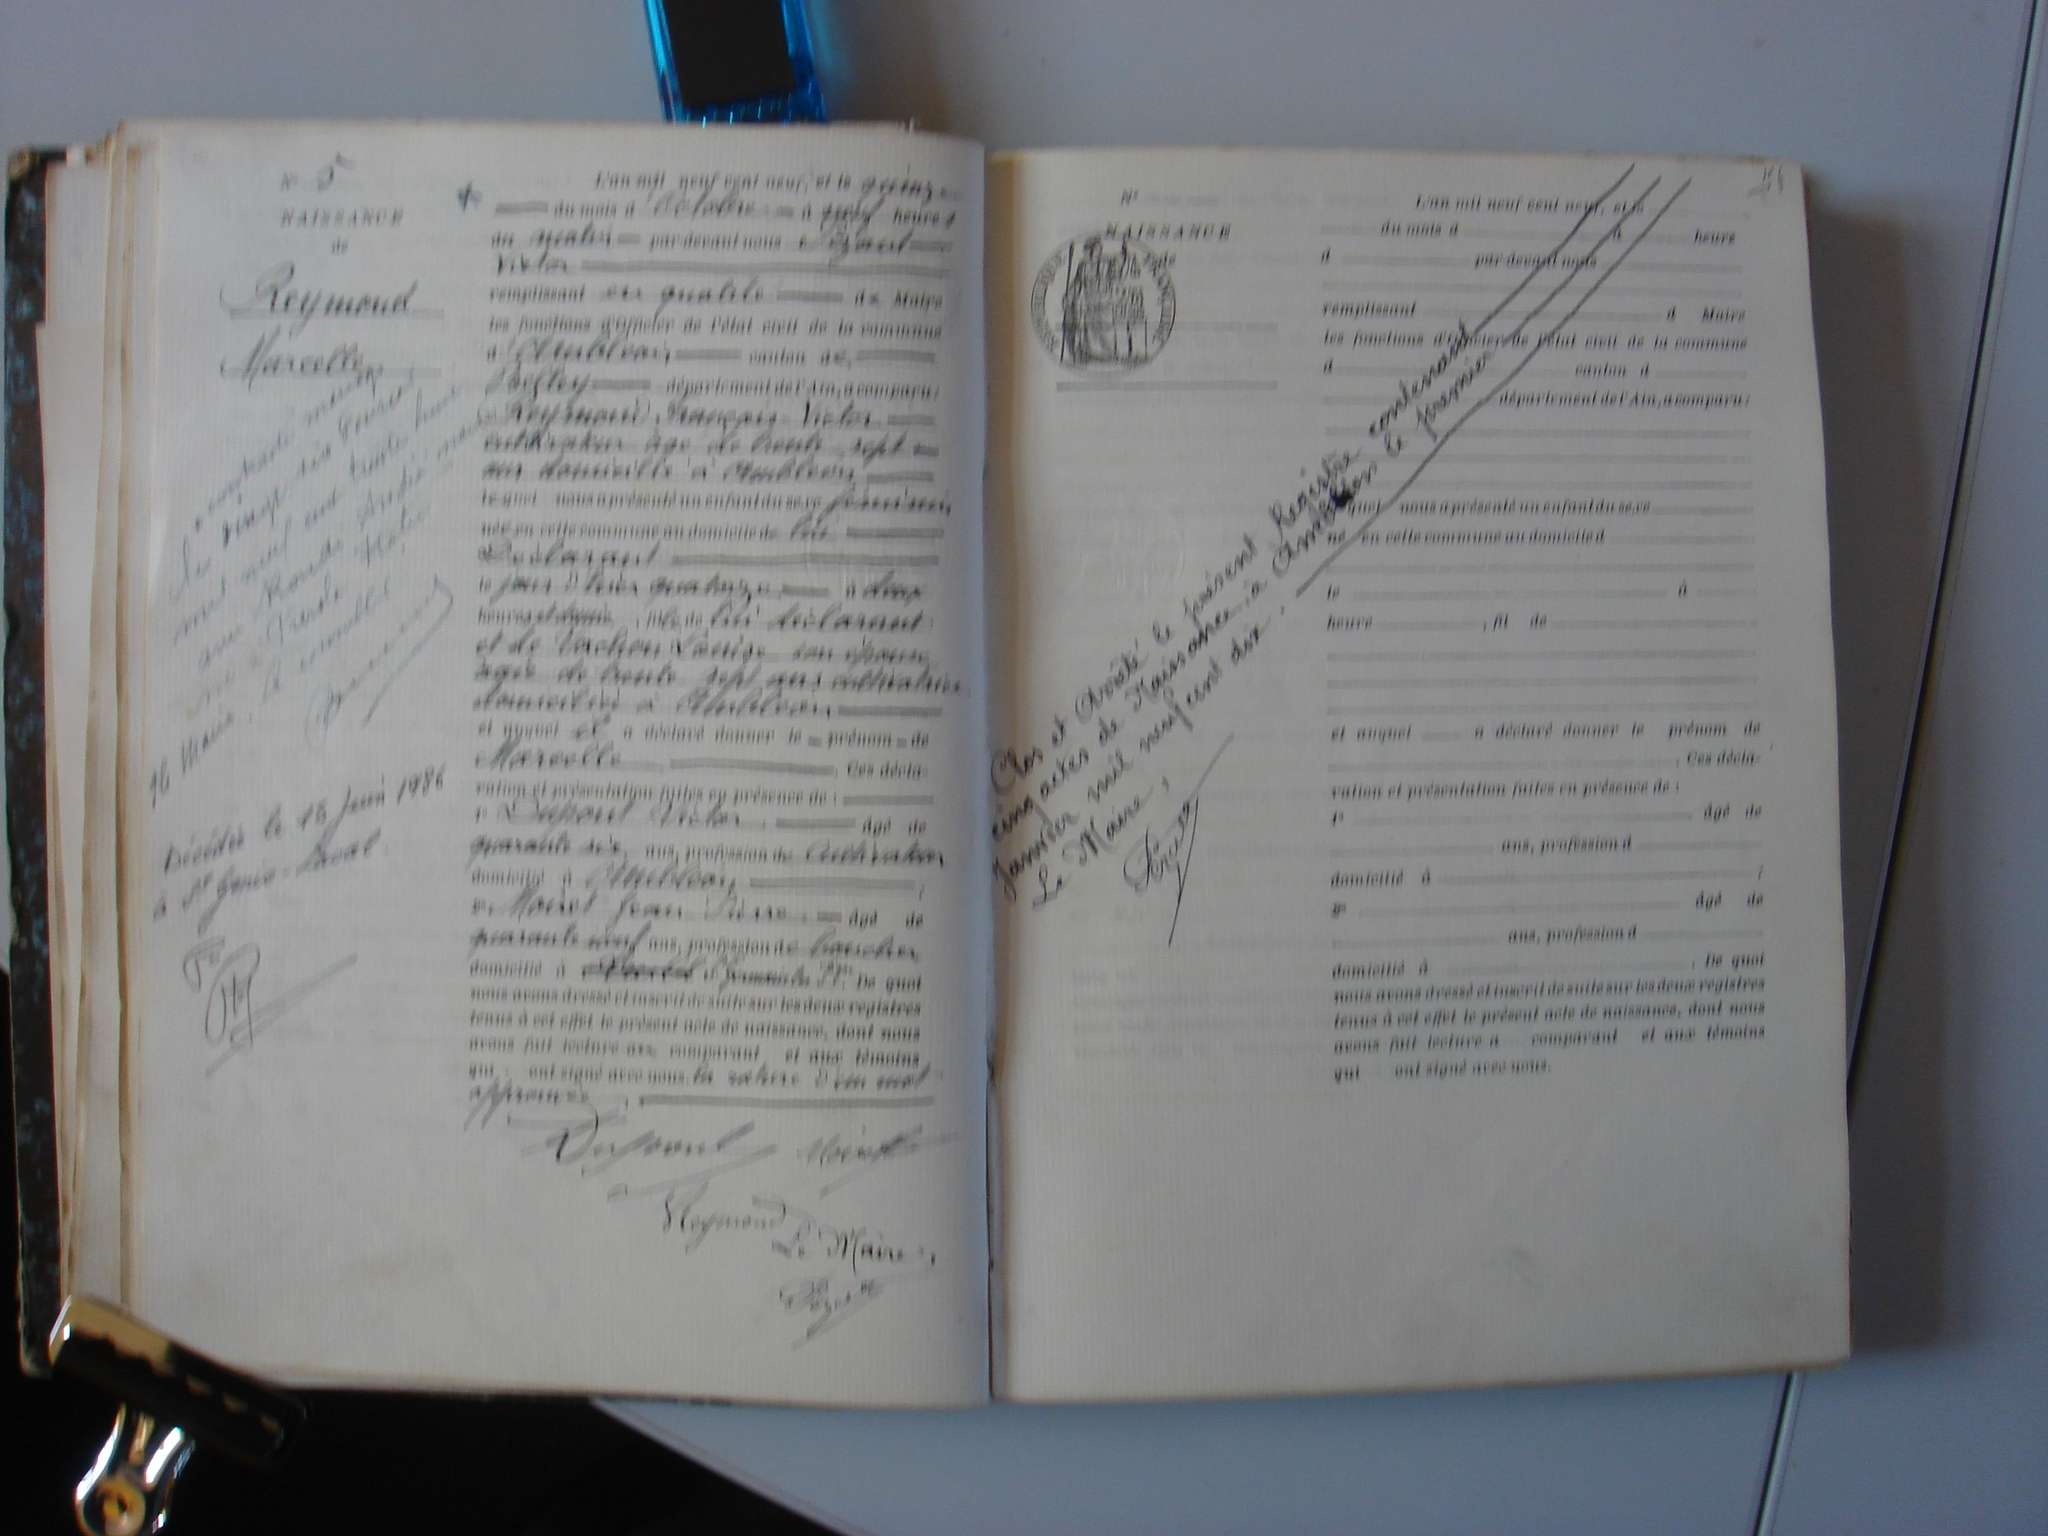 N° 5
NAISSANCE
de
Reymond
Marcelle
a contracté mariage
le vingt six Février
mil neuf cent trente huit
avec André, marié
Le
16 Maire
Décédée le 18 Juin 1986
à St Genis-Laval
L'an mil neuf cent neuf, et le quinze
du mois d'Octobre à neuf heures
du matin par devant nous
Victor
remplissant en qualité de Maire
les fonctions d'officier de l'état civil de la commune
d'Ambléon canton de
Belley département de l'Ain, a comparu:
Reymond François Victor
cultivateur âgé de trente sept
ans domicilié à Ambléon
lequel nous a présenté un enfant du sexe féminin
née en cette commune au domicile de lui
Déclarant
le jour d'hier quatorze à deux
heures et demie, fille de lui déclarant
et de Vachon Louise son épouse
âgée de trente sept ans cultivatrice
domiciliée à Ambléon
et auquel il a déclaré donner le prénom de
Marcelle. Ces décla-
ration et présentation faites en présence de:
1° Dupont Victor, âgé de
quarante six ans, profession de cultivateur
domicilié à Ambléon;
2° Moiret Jean Pierre, âgé de
quarante neuf ans, profession de boucher
domicilié à De quoi
nous avons dressé et inscrit de suite sur les deux registres
tenus à cet effet le présent acte de naissance, dont nous
avons fait lecture aux comparant et aux témoins
qui ont signé avec nous. la rature d'un mot
approuvée
Dupont Moiret
Reymond
Le Maire,
N°
NAISSANCE
de
RÉPUBLIQUE FRANÇAISE
L'an mil neuf cent neuf, et le
du mois d à heure
d par devant nous
remplissant d Maire
les fonctions d'officier de l'état civil de la commune
d canton d
département de l'Ain, a comparu:
lequel nous a présenté un enfant du sexe
né en cette commune au domicile d
le à
heure , fil de
et auquel a déclaré donner le prénom de
. Ces décla-
ration et présentation faites en présence de:
1° âgé de
ans, profession d
domicilié à ;
2° âgé de
ans, profession d
domicilié à . De quoi
nous avons dressé et inscrit de suite sur les deux registres
tenus à cet effet le présent acte de naissance, dont nous
avons fait lecture a comparant et aux témoins
qui ont signé avec nous.
Clos et Arrêté le présent Registre contenant
cinq actes de Naissance, à Ambléon le premier
Janvier mil neuf cent dix.
Le Maire,